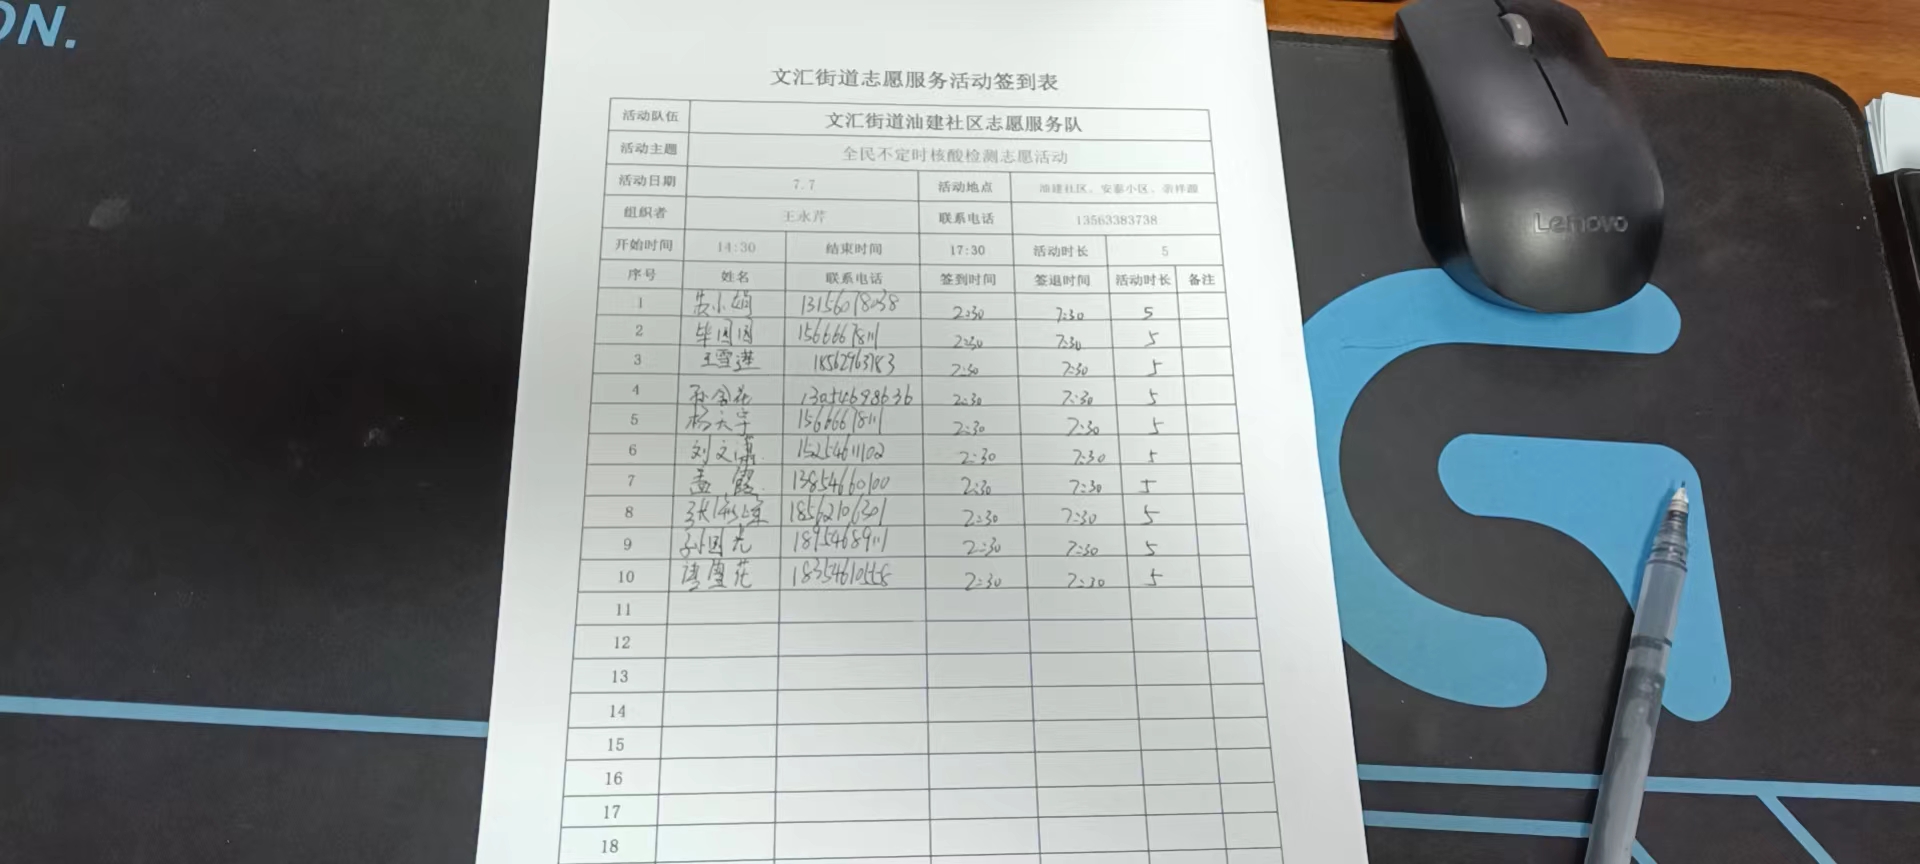 ON.
Lenovo
文汇街道志愿服务活动签到表
活动队伍 文汇街道油建社区志愿服务队
活动主题 全民不定时核酸检测志愿活动
活动日期 7.7 活动地点 油建社区、安泰小区、
组织者 王永芹 联系电话 13563383738
开始时间 14:30 结束时间 17:30 活动时长 5
序号 姓名 联系电话 签到时间 签退时间 活动时长 备注
1 小娟 13156018038 2:30 7:30 5
2 毕圆圆 15666678111 2:30 7:30 5
3 王雪莲 18562963783 2:30 7:30 5
4 孙金花 13054698636 2:30 7:30 5
5 杨天宇 15666678111 2:30 7:30 5
6 刘文 15254611102 2:30 7:30 5
7 孟霞 13854660100 2:30 7:30 5
8 张 18562106301 2:30 7:30 5
9 孙国光 18954689111 2:30 7:30 5
10 雪花 18354610558 2:30 7:30 5
11
12
13
14
15
16
17
18